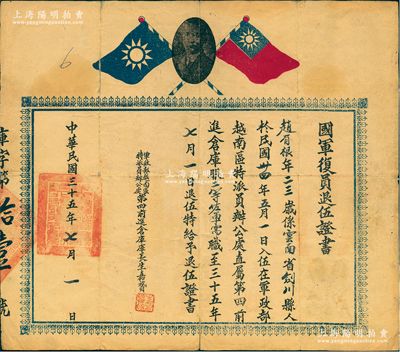 上海陽明拍賣
www.yangmingauction.com
6
國軍復員退伍證書
趙有根年二三歲係雲南省劍川縣人
於民國卅四年五月一日入伍在軍政部
越南區特派員辦公處直屬第四前
進倉庫充二等佐軍需職至三十五年
七月一日退伍特給予退伍證書
軍政部越南區
特派員辦公處
第四前進倉庫庫長
中華民國三十五年七月一日
庫字第拾壹號